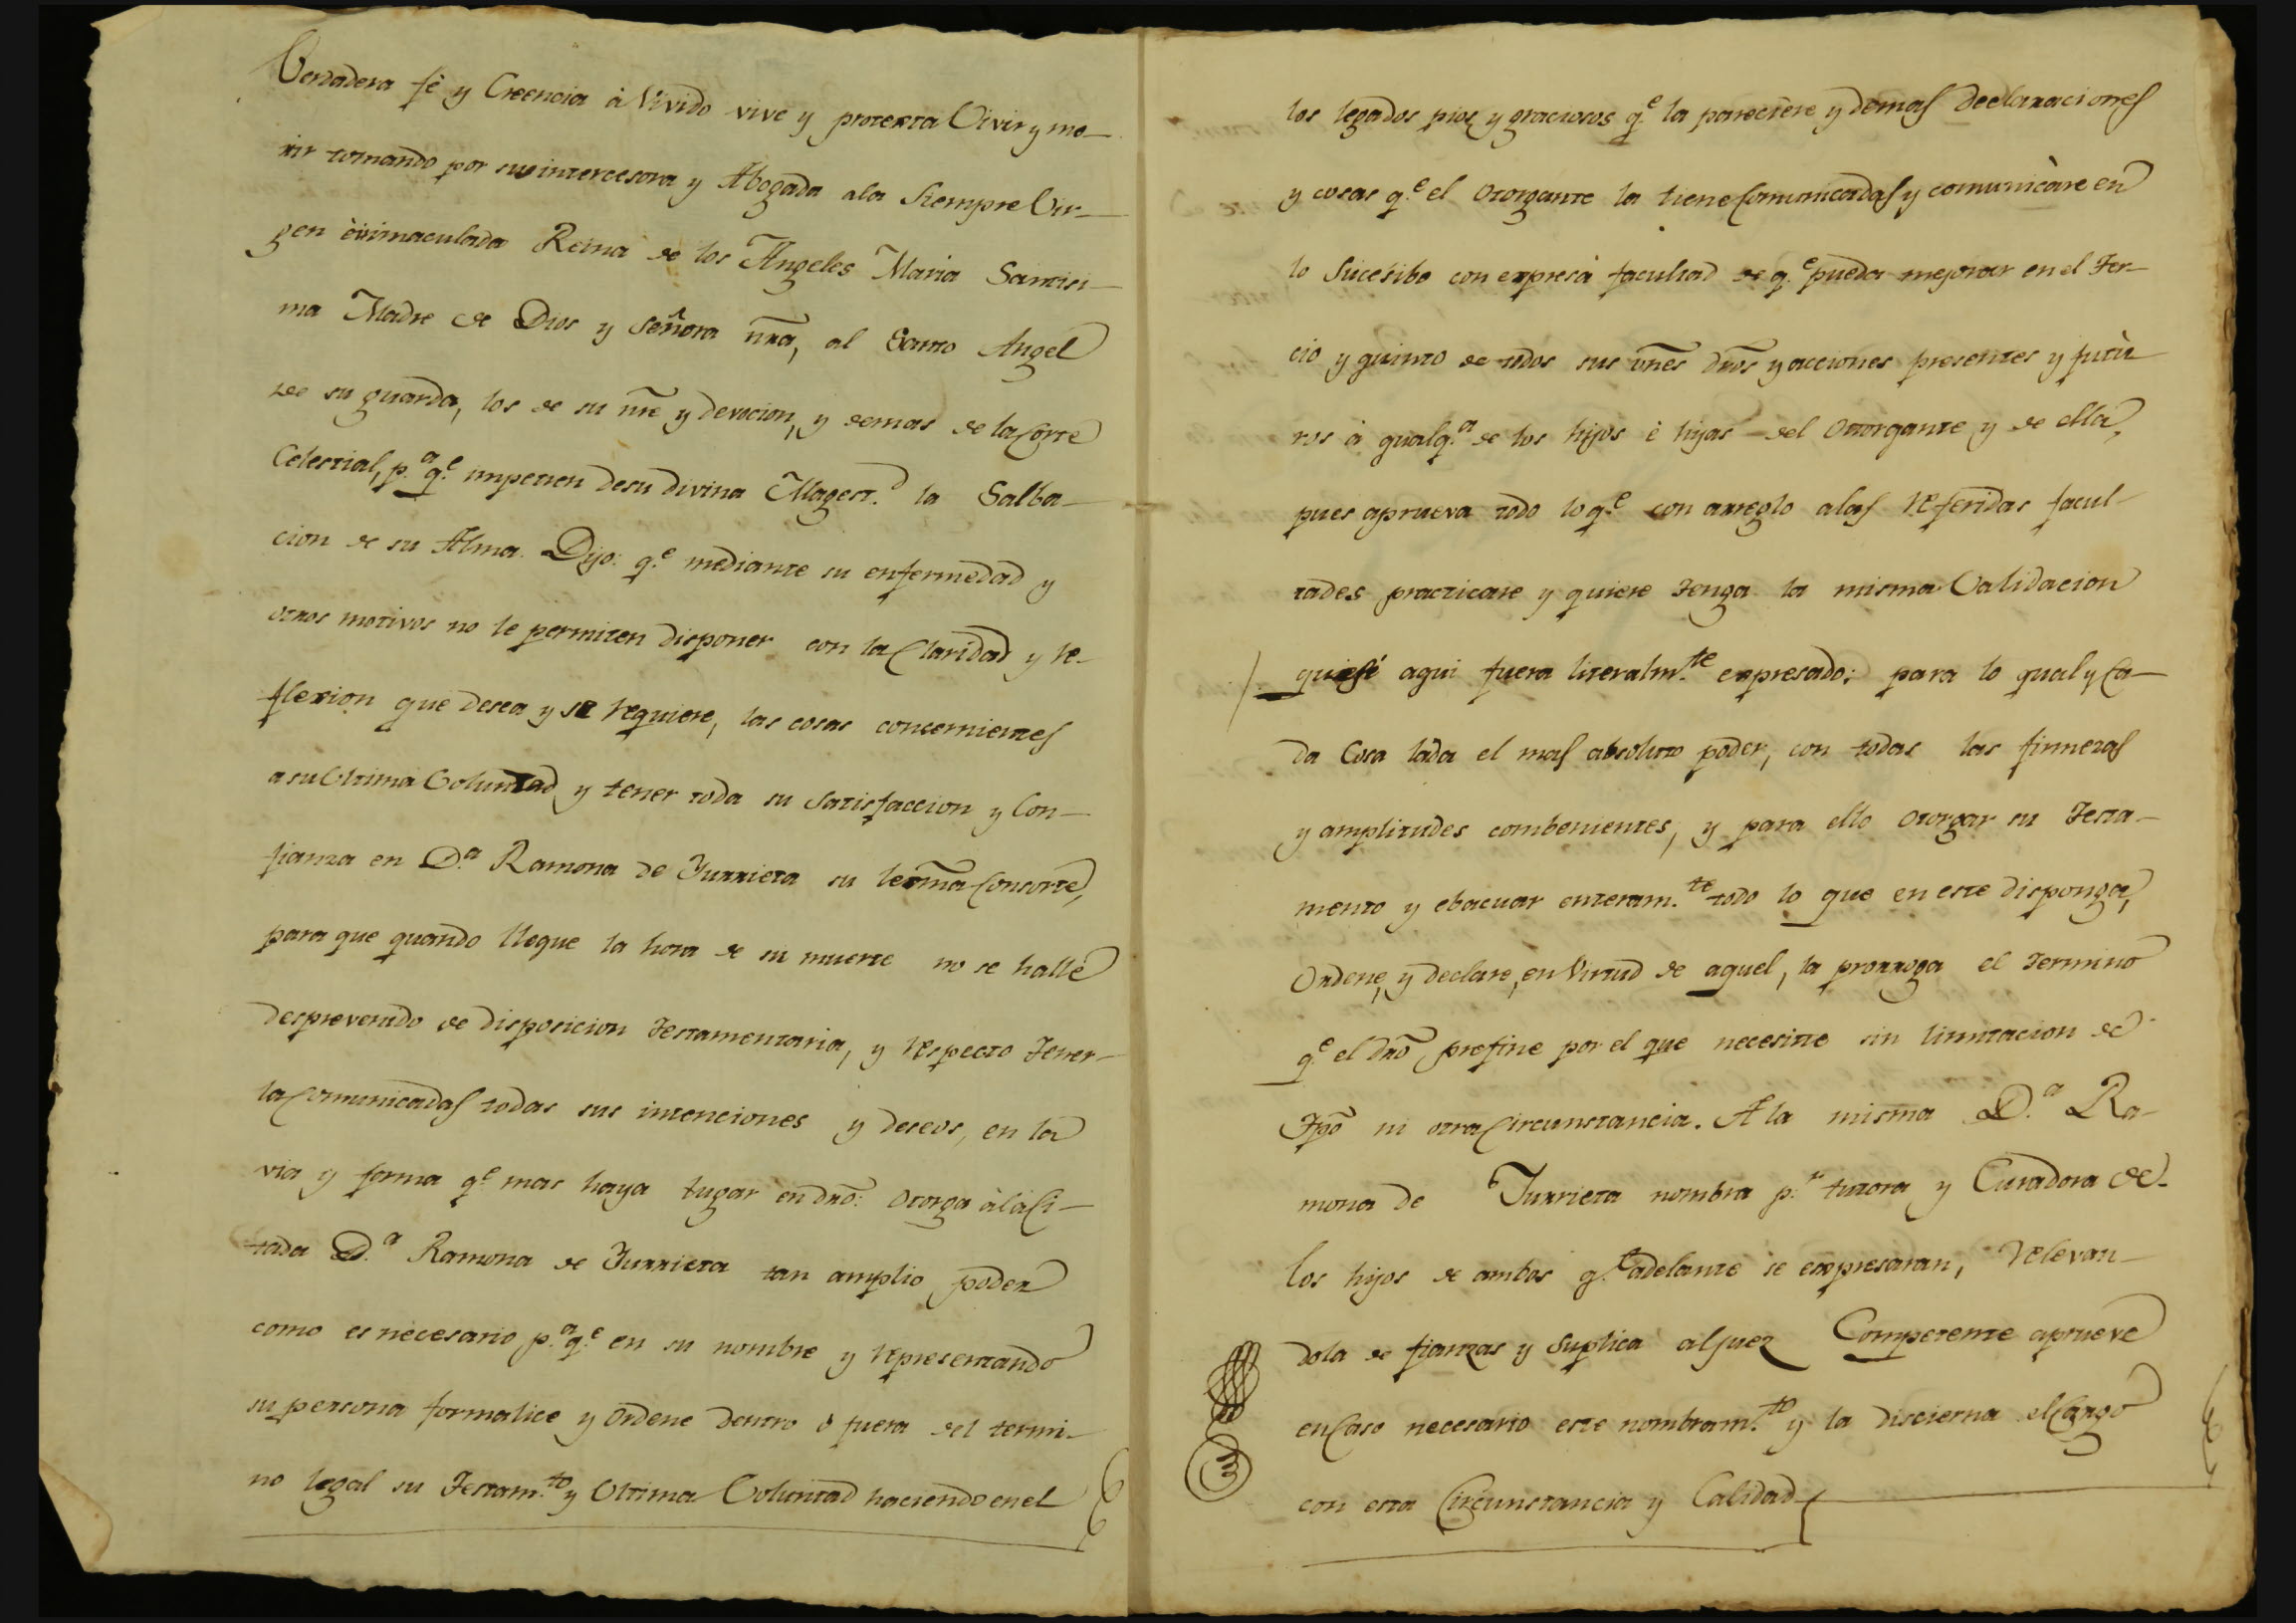 Verdadera fè y Creencia à Vivido vive y protexta Vivir y mo-
rir tomando por su intercesora y Abogada ala Siempre Vir-
gen è inmaculada Reina de los Angeles Maria Santisi-
ma Madre de Dios y Señora nrã, al Santo Angel
de su guarda, los de su nre y devocion, y demas de la Corte
Celestial, p.ª q.e impetren desu divina Magest.d la Salba-
cion de su Alma. Dijo: q.e mediante su enfermedad y
otros motivos no le permiten disponer con la Claridad y re-
flexion que desea y se requiere, las cosas concernientes
a su Ultima Voluntad y tener toda su Satisfaccion y Con-
fianza en D.ª Ramona de Yurrieta su lexma Consorte,
para que quando llegue la hora de su muerte no se halle
desprevenido de disposicion Testamentaria, y respecto Tener-
la Comunicadas todas sus intenciones y deseos, en la
via y forma q.e mas haya lugar en dro: Otorga à la Ci-
tada D.ª Ramona de Yurrieta tan amplio poder
como es necesario p.ª q.e en su nombre y representando
su persona formalice y Ordene dentro ò fuera del termi-
no legal su Testam.to y Ultima Voluntad haciendo en el
los legados pios y graciosos q.e la pareciere y demas declaraciones
y cosas q.e el Otorgante la tiene Comunicadas y comunicàre en
lo Sucesibo con expresa facultad de q.e pueda mejorar en el Ter-
cio y quinto de todos sus vnes dros y acciones presentes y futu
ros à qualq.ª de los hijos è hijas del Otorgante y de ella,
pues aprueva todo lo q.e con arreglo alas referidas facul-
tades practicare y quiere Tenga la misma Validacion
que si aqui fuera literalm.te expresado: para lo qual y Ca-
da Cosa la da el mas absoluto poder, con todas las firmezas
y amplitudes combenientes, y para ello Otorgar su Testa-
mento y ebacuar enteram.te todo lo que en este disponga,
Ordene, y declare, en Virtud de aquel, la prorroga el Termino
q.e el dro prefine por el que necesite sin limitacion de
Tpo ni otra Circunstancia. A la misma D.ª Ra-
mona de Yurrieta nombra p.r tutora y Curadora de
los hijos de ambos q.e adelante se expresaran, relevan-
dola de fianzas y Suplica al Juez Competente aprueve
en Caso necesario este nombram.to y la discierna el Cargo
con esta Circunstancia y Calidad